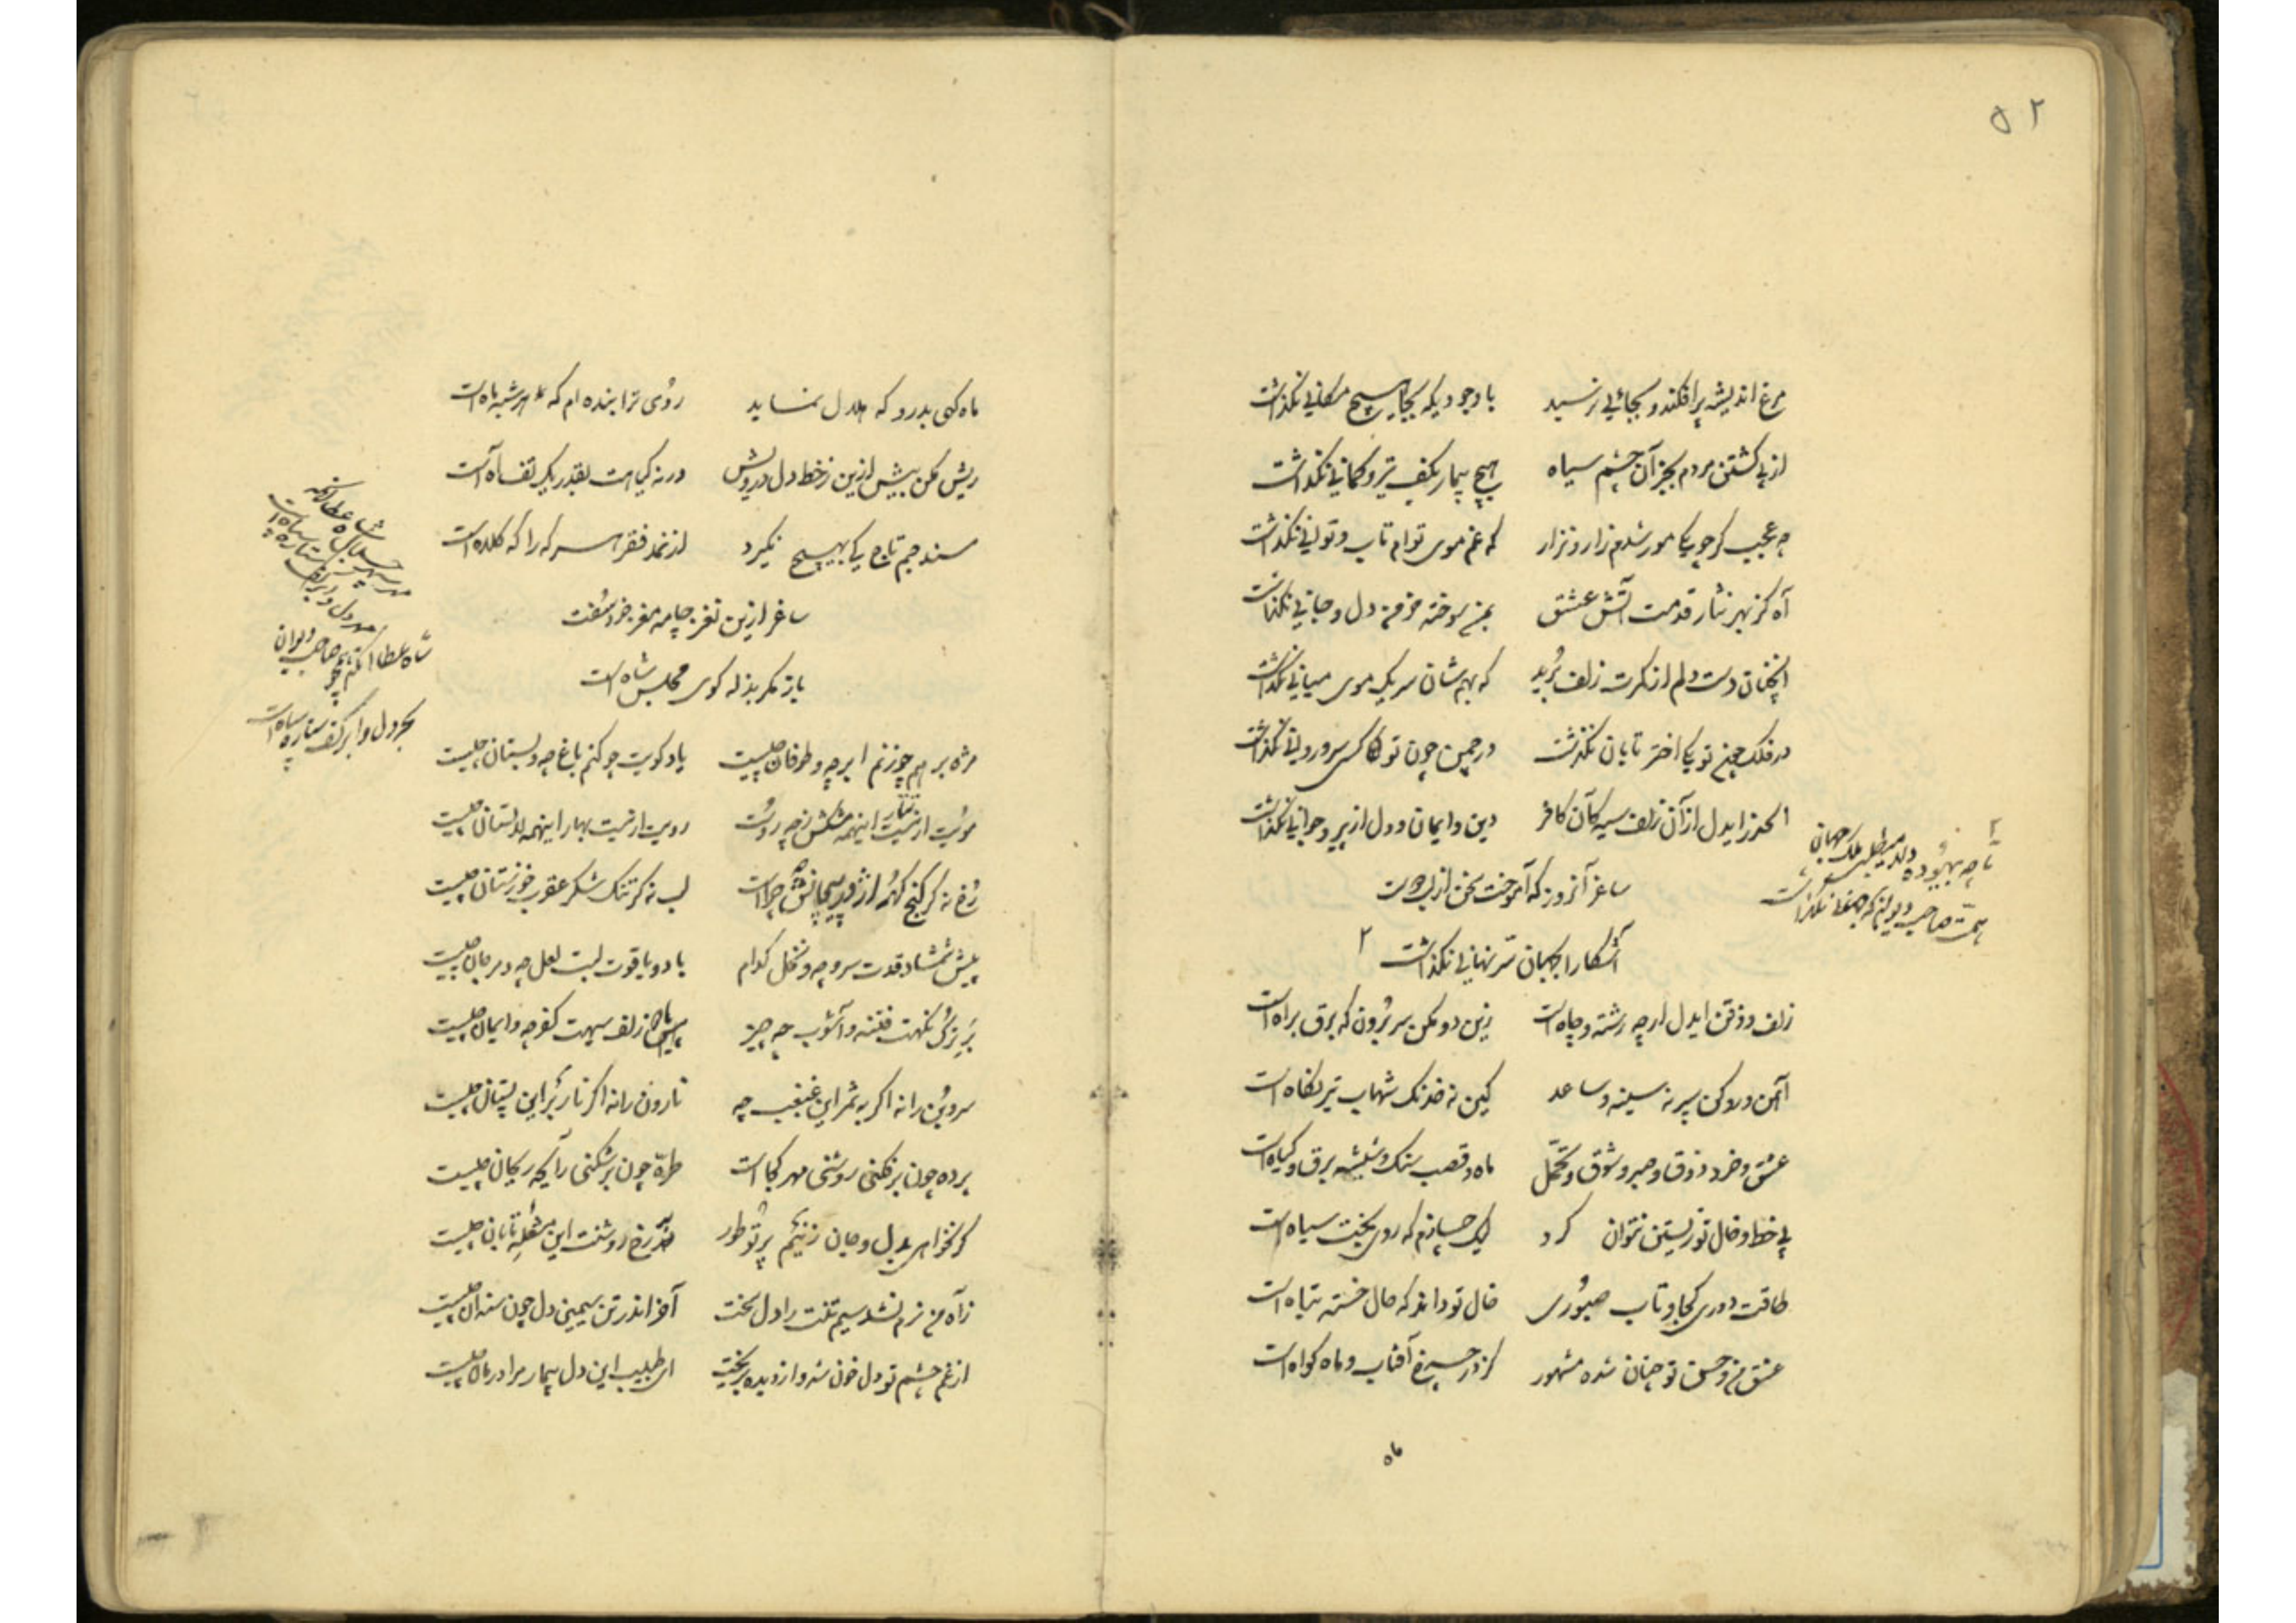 ۵۲
مرغ اندیشه پر افکند و بجائی نرسید با وجودیکه بجا هیچ مکانی نگذاشت
از پی کشتن مردم بجز آن چشم سیاه هیچ بیمار بکف تیر و کمانی نگذاشت
چه عجب گر چو یکی مور شدم زار و نزار که غم موی توام تاب و توانی نگذاشت
آه کز بهر نثار قدمت آتش عشق بمن سوخته خرمن دل و جانی نگذاشت
آنچنان دست دلم از کمرت زلف برید که بهم شان سر یک موی میانی نگذاشت
در فلک چون تو یکی اختر تابان نگذشت در چمن چون تو کسی سرو روانی نگذاشت
الحذر ایدل از آن زلف سیه کان کافر دین و ایمان و دل از پیر و جوانی نگذاشت
تا چه بیهوده دلا میطلبی ملک جهان
همت صاحب دیوان که جهانی نگذاشت
ساغر آنروز که آموخت سخن از لب دوست
آشکارا بجهان سر نهانی نگذاشت ۲
زلف و ذقن ایدل ار چه رشته و چاه است زین دو مکن سر برون که برق براه است
آهن و رو کن سپر نه سینه و ساعد کین نه خدنک شهاب تیر نگاه است
عشق و خرد ذوق و صبر و شوق و تحمل ماه و قصب سنک و شیشه برق و گیاه است
بی خط و خال تو زیستن نتوان کرد لیک چسازم که روی بخت سیاه است
طاقت دوری کجا و تاب صبوری خال تو داند که حال خسته تباه است
عشق من و حسن تو چنان شده مشهور کز در چرخ آفتاب و ماه گواه است
ماه
ماه کهی بدر و که هلال نماید روی ترا بنده‌ام که هر شبه ماه است
ریش مکن بیش ازین ز خط دل درویش ورنه گیاهت بقدر یک تف آه است
مسند جم تاج کی بهیچ نگیرد از نمد فقر هر سر که را که کلاه است
ساغر ازین نغز چامه مغز خرد سفت
باز مگر بذله گوی مجلس شاه است
شاه عطا
شاه عطا صاحب دیوان
بحر دل و ابر کف ستاره سپاه است
مژه بر هم چو زنم ابر چه و طوفان چیست یاد کویت چو کنم باغ چه و بستان چیست
مویت ار نیست تتار اینهمه مشکش ز چه روست رویت ار نیست بهار اینهمه لالستان چیست
رخ نه گر گنج گهر اژدر پیچانش چراست لب نه گر تنک شکر عقرب خوزستان چیست
پیش شمشاد قدت سرو چه و نخل کدام با دو یاقوت لبت لعل چه و مرجان چیست
بر ترک نگهت فتنه و آشوب چه چیز با زلف سیهت کفر چه و ایمان چیست
سرو بن را نه اگر به ثمر این غبغب چه نارون را نه اگر نار بر این پستان چیست
پرده چون برفکنی روشنی مهر کجا است طره چون برشکنی رایحه ریحان چیست
گر نخواهی بدل و جان زنیم پرتو طور رخ روشنت این مشعله تابان چیست
ز آه من نرم نشد سیم تنت را دل سخت آخر اندر تن سیمین دل چون سندان چیست
از غم چشم تو دل خون شد و از دیده بریخت ای طبیب این دل بیمار مرا درمان چیست